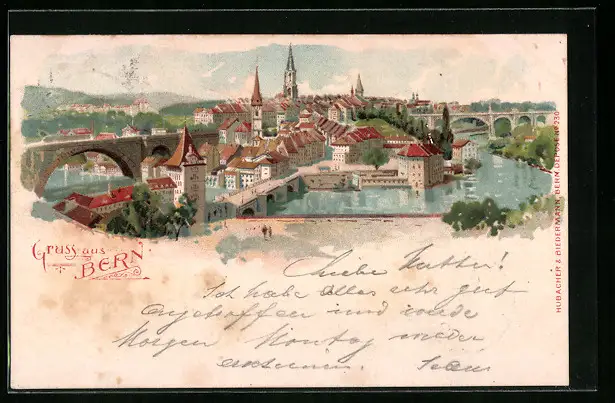 Gruss aus
BERN
Liebe Mutter!
Ich habe Alles sehr gut
angetroffen und werde
Morgen Montag wieder
HUBACHER & BIEDERMANN, BERN. DÉPOSÉ Nº 230